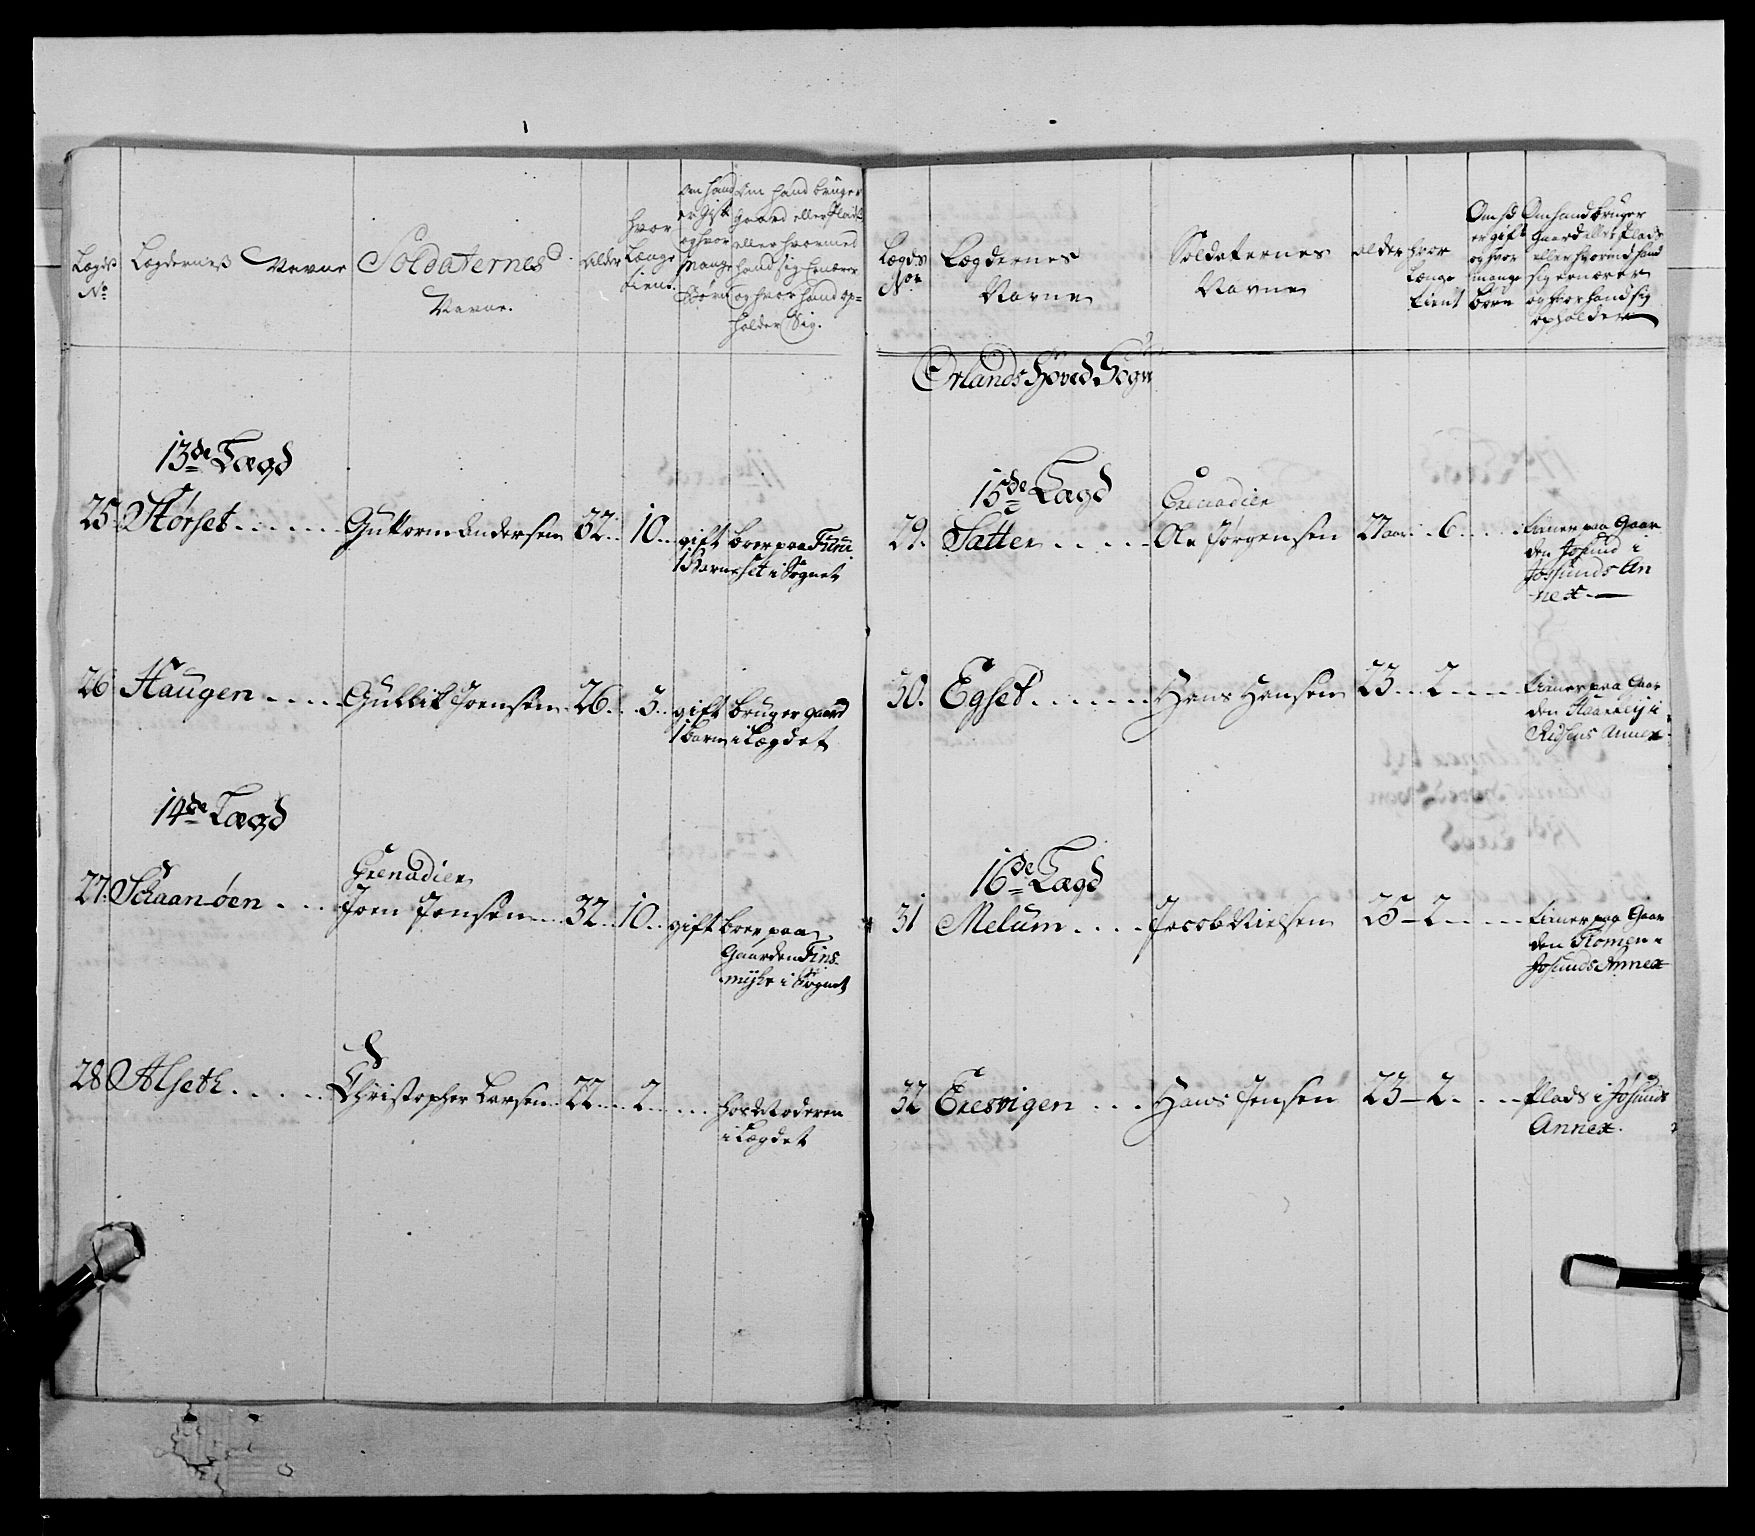 Lægds No
Lægdernes Navne
Soldaternes
Navne.
Alder
hvor
Længe
tient.
om hand
er Gift
og hvor
Mange
Børn
Om hand bruger
Gaard eller Plads
eller hvormed
hand sig Ernærer
og hvor hand op=
holder Sig.
13de Lægd
25 Størset . . . . . . Guttorm Andersen 32. 10. gift boer paa Furu
1 Barn set i Sognet
26 Haugen . . . . Gullik Joensen 26. . 3. . gift bruger gaard
1 barn i Lægdet
14de Lægd
Grenadier
27. Skaanøen . . . Joen Jensen 32. . 10. . gift boer paa
Gaarden Fins
myhr i Sognet
28 Alseth . . . . . Christopher Larsen 22. . . 2. . . . hos
i Lægdet
Lægds
Nor
Lægdernes
Navne
Soldaternes
Navne
alder
hvor
Længe
tient
Om hd
er gift
og hvor
mange
børn
Om hand bruger
Gaard eller Plads
eller hvormed hand
sig ernærer
og hvor hand sig
opholder
Ørlands Hoved Sogn
15de Lægd
Grenadier
29. Satter . . . . . Ole Jørgensen 27 aar . . 6 . . . . tiener paa Gaar
den Josund i
Jossunds An
nex.
30. Egset . . . . . . . Hans Hansen 23 . . . 2 . . . . tiener paa Gaar
den i
Annex
16de Lægd
31 Melum . . . . Jacob Nielsen 25 - 2 . . . . tiener paa Gaar
den i
Josunds Annex
32 Exesvigen . . . Hans Jensen 23 - 2 . . . . Plads i Jøsunds
Annex.